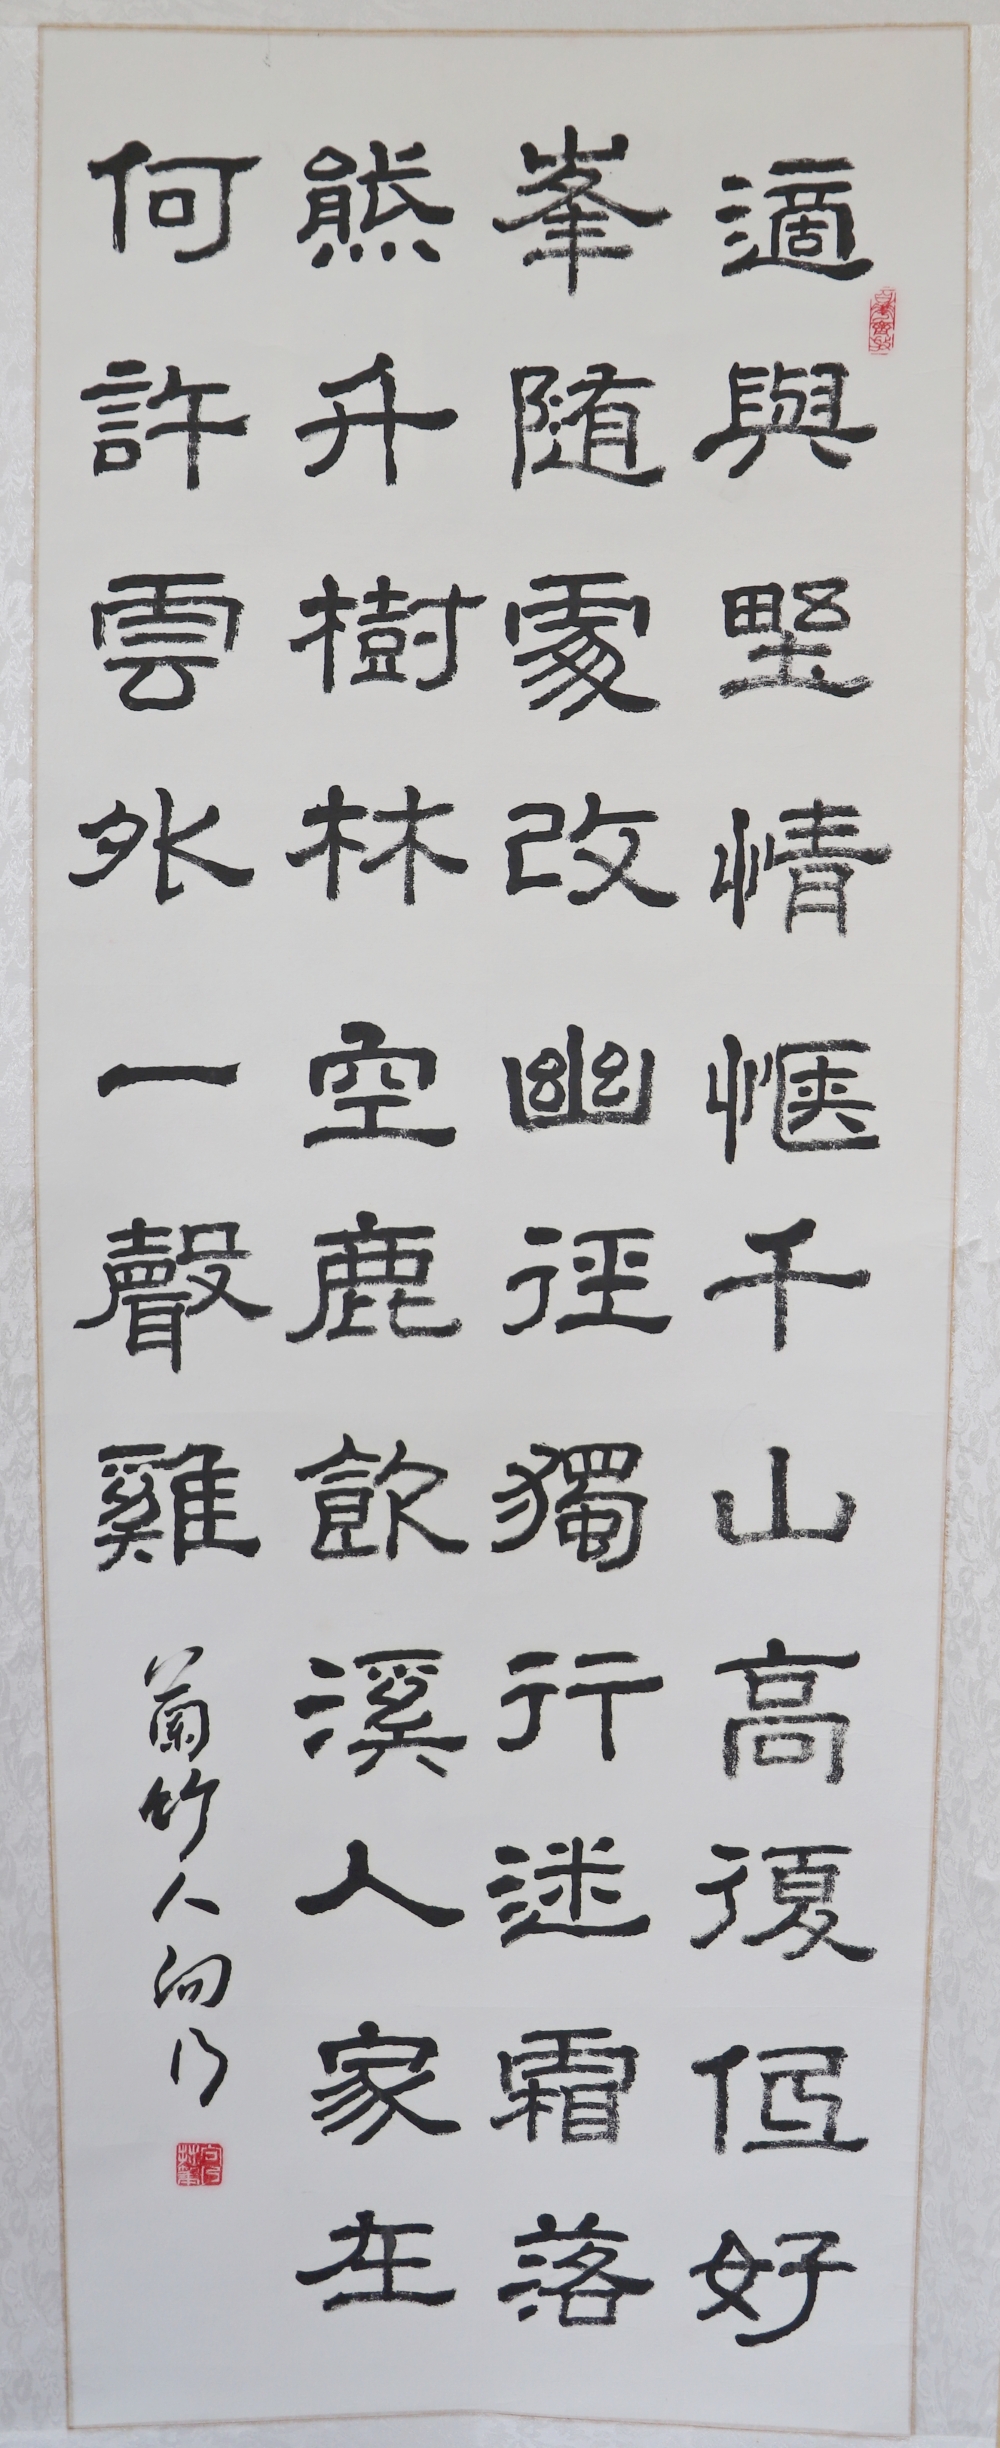 適與野情愜千山高復低好
峯隨處改幽徑獨行迷霜落
熊升樹林空鹿飲溪人家在
何許雲外一聲雞
蘭竹人向乃